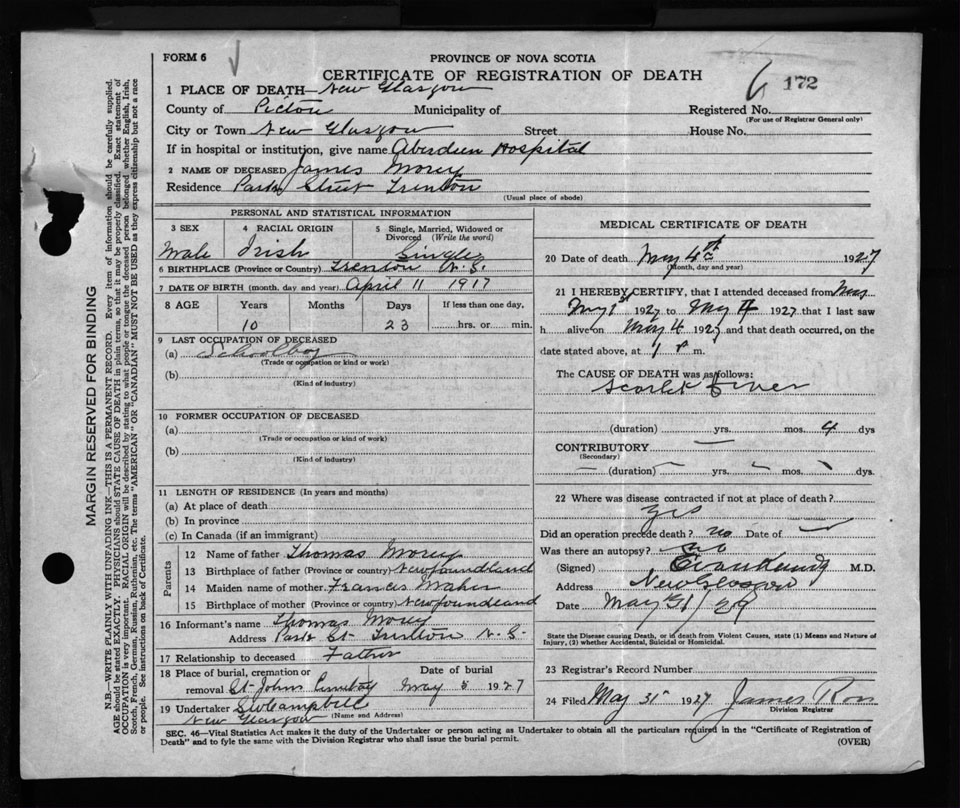 FORM 6
PROVINCE OF NOVA SCOTIA
CERTIFICATE OF REGISTRATION OF DEATH
6 172
1 PLACE OF DEATH—New Glasgow
County of Pictou Municipality of Registered No.
(For use of Registrar General only)
City or Town New Glasgow Street House No.
If in hospital or institution, give name Aberdeen Hospital
2 NAME OF DECEASED James Morey
Residence Park Street Trenton
(Usual place of abode)
PERSONAL AND STATISTICAL INFORMATION
3 SEX
Male
4 RACIAL ORIGIN
Irish
5 Single, Married, Widowed or
Divorced (Write the word)
Single
6 BIRTHPLACE (Province or Country) Trenton N.S.
7 DATE OF BIRTH (month, day and year) April 11 1917
8 AGE Years Months Days If less than one day,
10 23 hrs. or min.
9 LAST OCCUPATION OF DECEASED
(a) Schoolboy
(Trade or occupation or kind or work)
(b)
(Kind of industry)
10 FORMER OCCUPATION OF DECEASED
(a)
(Trade or occupation or kind of work)
(b)
(Kind of industry)
11 LENGTH OF RESIDENCE (In years and months)
(a) At place of death
(b) In province
(c) In Canada (if an immigrant)
Parents
12 Name of father Thomas Morey
13 Birthplace of father (Province or country) Newfoundland
14 Maiden name of mother Frances Maher
15 Birthplace of mother (Province or country) Newfoundland
16 Informant's name Thomas Morey
Address Park St Trenton N.S.
17 Relationship to deceased Father
18 Place of burial, cremation or Date of burial
removal St Johns Cemetery May 5 1927
19 Undertaker Campbell
New Glasgow (Name and Address)
MEDICAL CERTIFICATE OF DEATH
20 Date of death May 4th 1927
(Month, day and year)
21 I HEREBY CERTIFY, that I attended deceased from
May 1st 1927 to May 4 1927 that I last saw
h alive on May 4 1927 and that death occurred, on the
date stated above, at 1 P m.
The CAUSE OF DEATH was as follows:
Scarlet Fever
(duration) yrs. mos. 4 dys
CONTRIBUTORY —
(Secondary)
— (duration) yrs. mos. dys.
22 Where was disease contracted if not at place of death?
yes
Did an operation precede death? no Date of —
Was there an autopsy? no
(Signed) M.D.
Address New Glasgow
Date May 31/29
State the Disease causing Death, or in death from Violent Causes, state (1) Means and Nature of
Injury, (2) whether Accidental, Suicidal or Homicidal.
23 Registrar's Record Number
24 Filed May 31st 1927 James Ross
Division Registrar
SEC. 46—Vital Statistics Act makes it the duty of the Undertaker or person acting as Undertaker to obtain all the particulars required in the "Certificate of Registration of
Death" and to fyle the same with the Division Registrar who shall issue the burial permit.
(OVER)
MARGIN RESERVED FOR BINDING
N.B.—WRITE PLAINLY WITH UNFADING INK—THIS IS A PERMANENT RECORD. Every item of information should be carefully supplied.
AGE should be stated EXACTLY. PHYSICIANS should STATE CAUSE OF DEATH in plain terms, so that it may be properly classified. Exact statement of
OCCUPATION is very important. RACIAL ORIGIN will be described by stating to what people or tongue the deceased person belonged whether English, Irish,
Scotch, French, German, Russian, Ruthenian, etc. The terms "AMERICAN" OR "CANADIAN" MUST NOT BE USED as they express citizenship but not a race
or people. See instructions on back of Certificate.